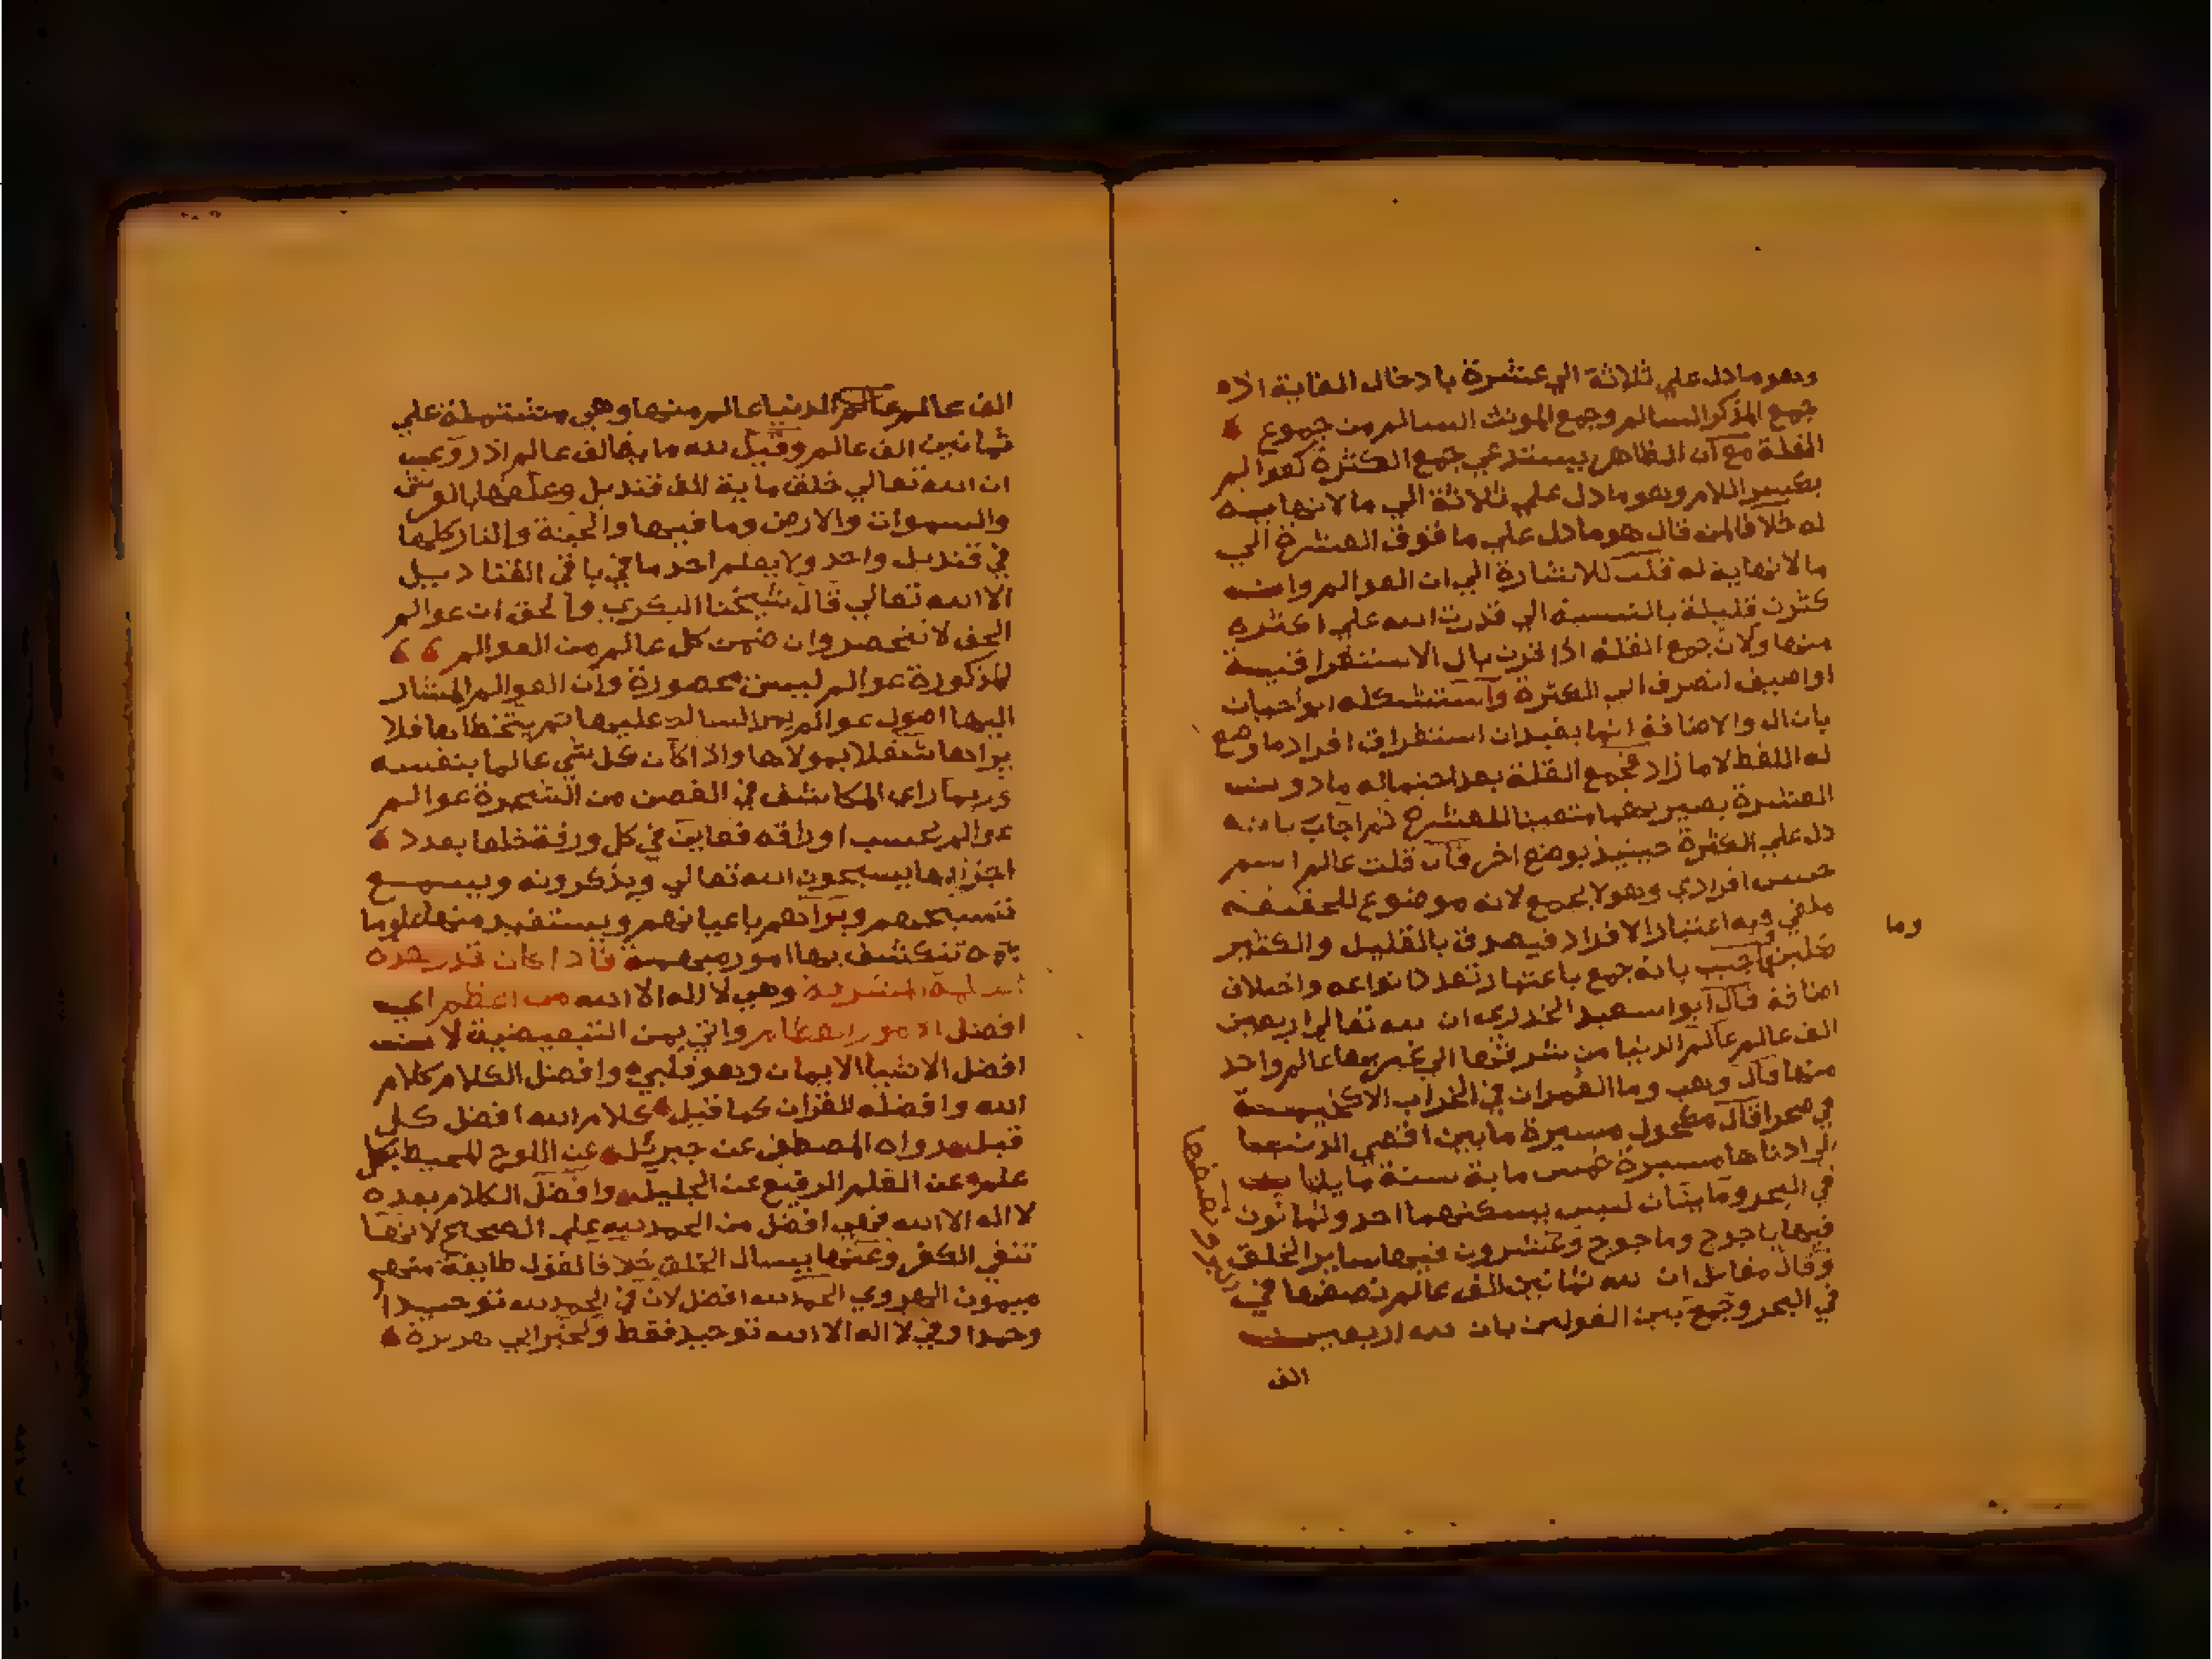 وهو مادل علي ثلاثة الي عشرة بادخال الغاية اذ
جمع المذكر السالم وجمع المونث السالم من جموع
القلة مع ان الظاهر يستدعي جمع الكثرة كعوالم
بكسر اللام وهو مادل علي ثلاثة الي مالانهايه
له خلافا لمن قال هو مادل علي ما فوق العشرة الي
مالانهاية له قلت للاشارة الي ان العوالم وان
كثرت قليلة بالنسبة الي قدرت الله علي اكثر
منها ولان جمع القلة اذا قرن بال الاستغراقية
او اضيف انصرف الي الكثرة واستشكله ابو حيان
بان ال والاضافة انما يفيدان استغراق افراد ما وضع
له اللفظ لا ما زاد فجمع القلة بعد احتماله مادون
العشرة يصير بهما متعينا للعشرة ثم اجاب بانه
دل علي الكثرة حينيذ بوضع اخر فان قلت عالم اسم
جنس افرادي وهو لا يجمع لانه موضوع للحقيقة
ملغي فيه اعتبار الافراد فيصدق بالقليل والكثير
وما
قلت اجيب بانه جمع باعتبار تعدد انواعه واختلاف
اضافة قال ابو اسعيد الخدري ان لله تعالي اربعين
الف عالم عالم الدنيا من شرقها الي غربها عالم واحد
منها وقال وهب وما العمران في الخراب الا كخيمة
في صحرا قال مكحول مسيرة مابين اقصي الدنيا
الي ادناها مسيرة خمس ماية سنة مايتا
في البحر ومايتان ليس يسكنهما احد وثمانون
فيها ياجوج وماجوج وعشرون فيها ساير الخلق
وقال مقاتل ان لله ثمانين الف عالم نصفها في
البر ونصفها
في البحر وجمع بين القولين بان لله اربعين
الف
الف عالم عالم الدنيا عالم منها وهي مشتملة علي
ثمانين الف عالم وقيل لله ماية الف عالم اذ روي
ان الله تعالي خلق ماية الف قنديل وعلقها بالعرش
والسموات والارض وما فيها والجنة والنار كلها
في قنديل واحد ولا يعلم احد ما في باقي القناديل
الا الله تعالي قال شيخنا البكري والحق ان عوالم
الحق لا تنحصر وان ضمن كل عالم من العوالم
المذكورة عوالم ليس محصورة وان العوالم المشار
اليها اصول عوالم يمر السالك عليها ثم يتخطاها فلا
يراها شغلا بمولاها واذا كان كل شي عالما بنفسه
وربما راي المكاشف في الغصن من الشجرة عوالم
عوالم بحسب اوراقه فعاين في كل ورقة خلقا بعدد
اجزايها يسبحون الله تعالي ويذكرونه ويسمع
تسبيحهم ويراهم باعيانهم ويستفيد منها علوما
تنكشف بها امور مبهمة فاذا كان قدر هذه
وهي لا اله الا الله من اعظم اي
افضل الامور العظام واتي بمن التبعيضية لان
افضل الاشيا الايمان وهو قلبي وافضل الكلام كلام
الله وافضله القران كما قيل كلام الله افضل كل
قيل رواه المصطفي عن جبرئل عن اللوح المحيط بكل
علم عن القلم الرفيع عن الجليل وافضل الكلام بعده
لا اله الا الله فهي افضل من الحمد لله علي الصحيح لانها
تنفي الكفر وعنها يسال الخلق خلافا لقول طايفة منهم
ميمون الهروي الحمد لله افضل لان في الحمد لله توحيدا
وحمدا وفي لا اله الا الله توحيد فقط ولخبر ابي هريرة